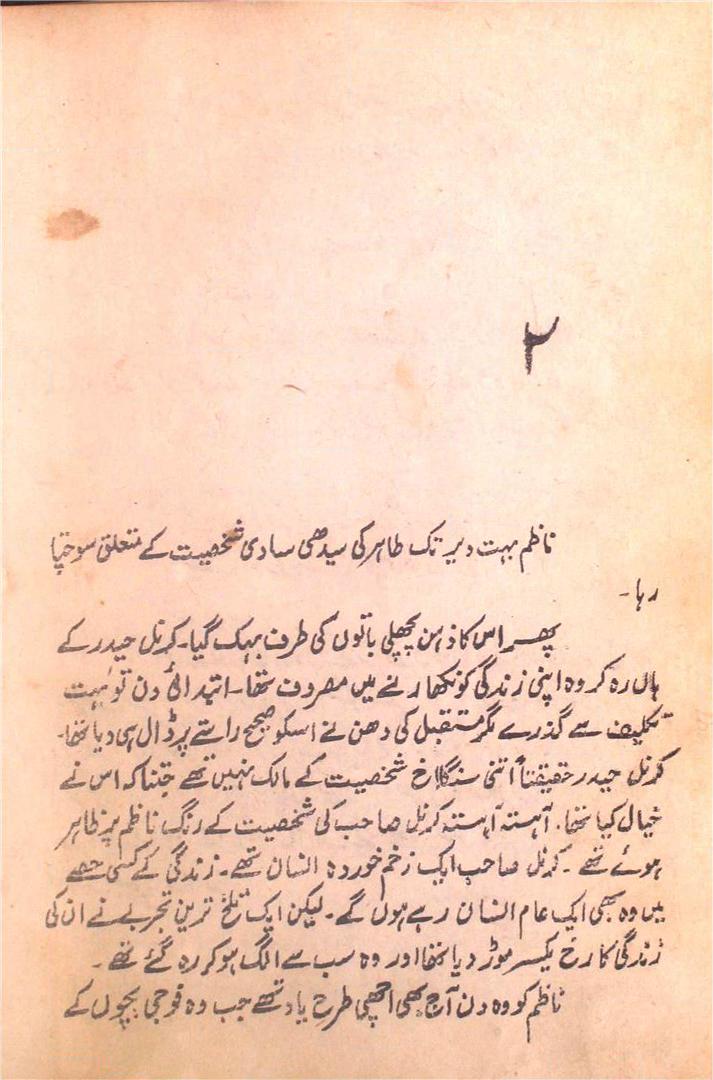 ۲
ناظم بہت دیر تک طاہر کی سیدھی سادی شخصیت کے متعلق سوچتا
رہا۔
پھر اس کا ذہن پچھلی باتوں کی طرف بہک گیا۔ کرنل حیدر کے
ہاں رہ کر وہ اپنی زندگی کو نکھارنے میں مصروف تھا۔ ابتدائی دن تو بہت
تکلیف سے گذرے مگر مستقبل کی دھن نے اسکو صحیح راستے پر ڈال ہی دیا تھا۔
کرنل حیدر حقیقتاً اتنی سنگلاخ شخصیت کے مالک نہیں تھے جتنا کہ اس نے
خیال کیا تھا۔ آہستہ آہستہ کرنل صاحب کی شخصیت کے رنگ ناظم پر ظاہر
ہوئے تھے۔ کرنل صاحب ایک زخم خوردہ انسان تھے۔ زندگی کے کسی حصے
میں وہ بھی ایک عام انسان رہے ہوں گے۔ لیکن ایک تلخ ترین تجربے نے ان کی
زندگی کا رخ یکسر موڑ دیا تھا اور وہ سب سے الگ ہو کر رہ گئے تھے۔
ناظم کو وہ دن آج بھی اچھی طرح یاد تھے جب وہ فوجی بچوں کے